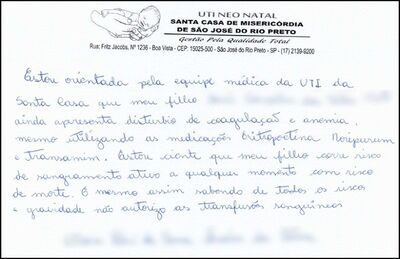 UTI NEO NATAL
SANTA CASA DE MISERICÓRDIA
DE SÃO JOSÉ DO RIO PRETO
Gestão Pela Qualidade Total
Rua: Fritz Jacobs, Nº 1236 - Boa Vista - CEP: 15025-500 - São José do Rio Preto - SP - (17) 2139-9200
Estou orientada pela equipe médica da UTI da
Santa Casa que meu filho
ainda apresenta disturbio de coagulação e anemia,
mesmo utilizando as medicações Eritropoetina Noripurum
e Transamin. Estou ciente que meu filho corre risco
de sangramento ativo a qualquer momento com risco
de morte. E mesmo assim sabendo de todos os riscos
e gravidade não autorizo as transfusões sanguíneas